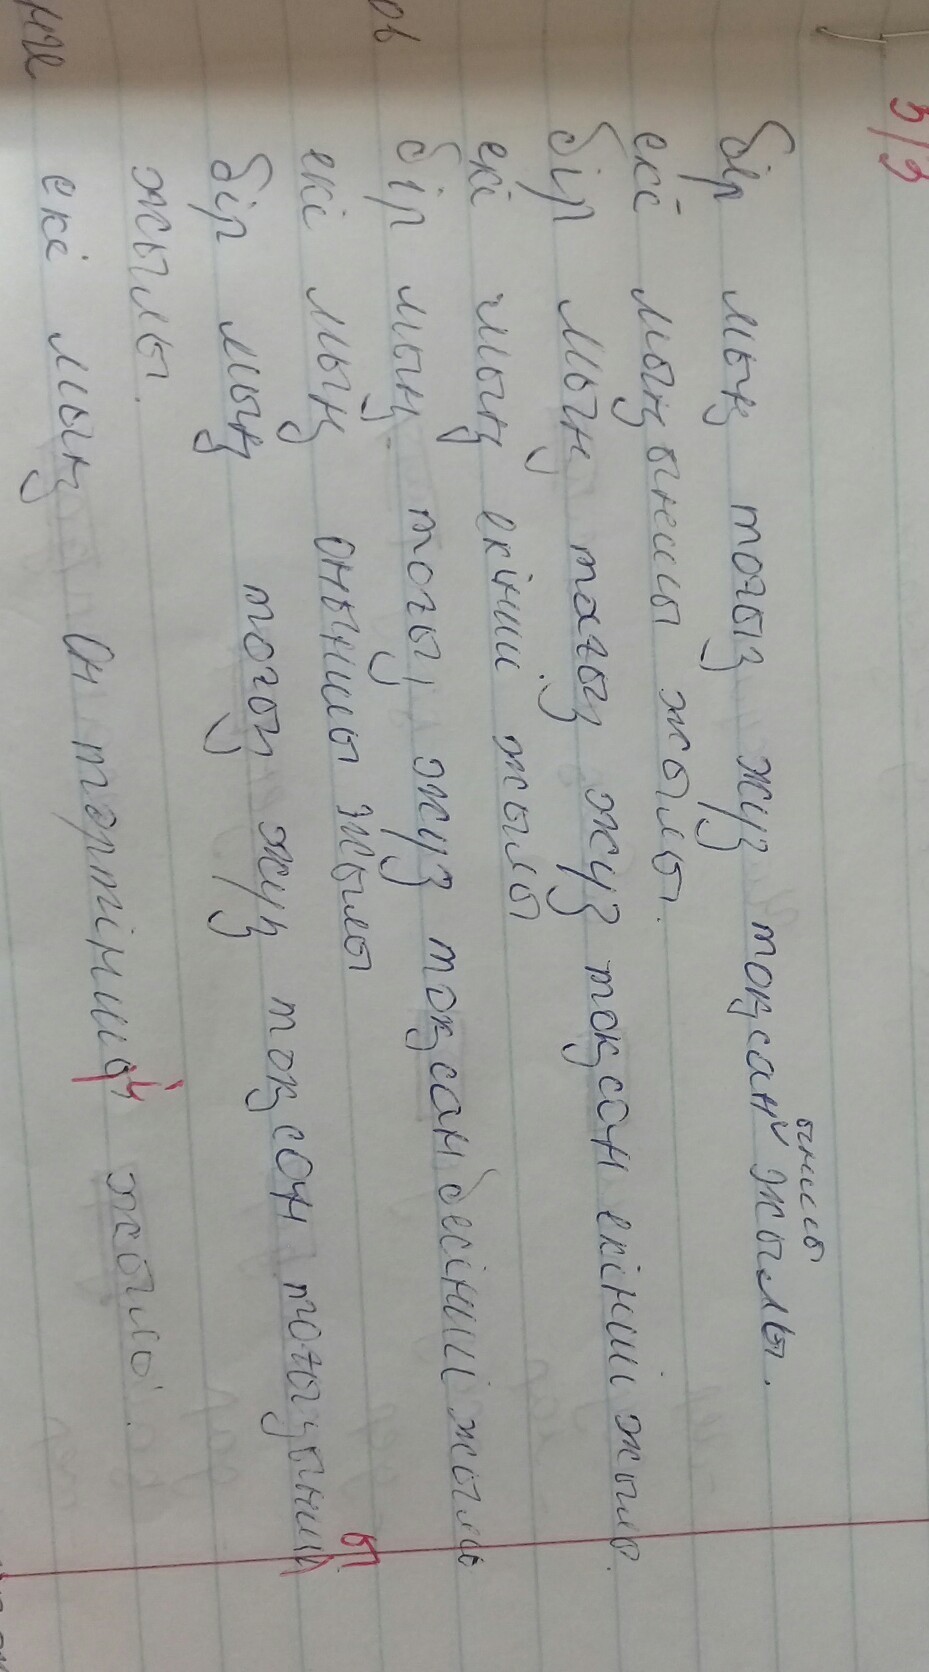 3/3
бір мың тоғыз жүз тоқсан ыншы жылы.
екі мыңыншы жылы.
бір мың тағыз жүз тоқсан екінші жылы.
екі мың екінші жылы
бір мың тоғыз жүз тоқсан бесінші жылы
екі мың оныншы жылы
бір мың тоғоз жүз тоқсон тоғызыншы
жылы.
екі мың Он тортінші жылы.